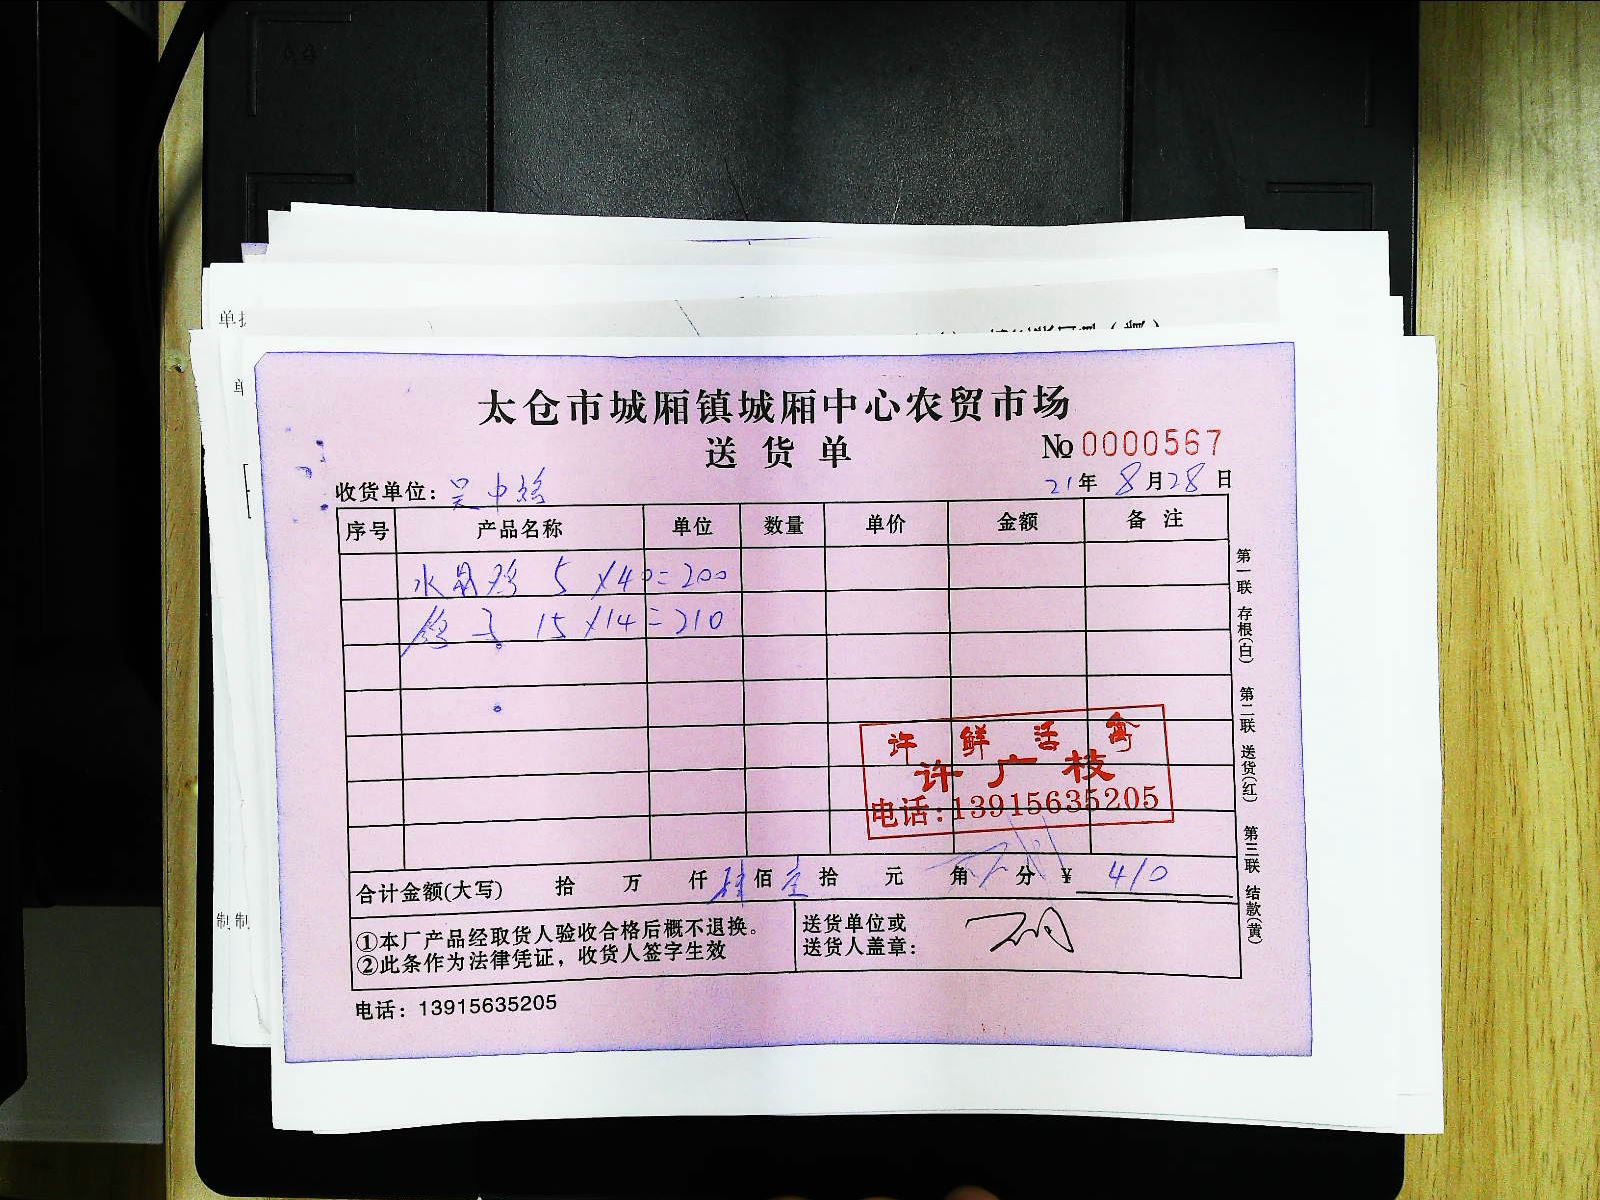 太仓市城厢镇城厢中心农贸市场
送货单
№ 0000567
收货单位：吴中
21年 8月28日
序号 产品名称 单位 数量 单价 金额 备注
水晶鸡 5 ×40=200
鸽子 15 ×14=210
许 鲜 活 禽
许广枝
电话:13915635205
合计金额(大写) 拾 万 仟 肆佰 壹拾 元 角 分 ¥ 410
①本厂产品经取货人验收合格后概不退换。
②此条作为法律凭证，收货人签字生效
送货单位或
送货人盖章：
电话：13915635205
第一联 存根(白) 第二联 送货(红) 第三联 结款(黄)
单
单
制 制